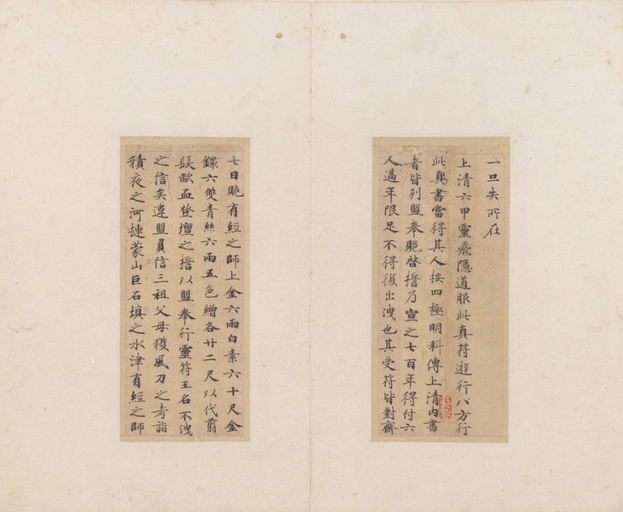 一旦失所在
上清六甲靈飛隱道服此真符遊行八方行
此真書當得其人按四極明科傳上清內書
者皆列盟奉貺啓誓乃宣之七百年得付六
人過年限足不得復出洩也其受符皆對齋
七日貺有經之師上金六兩白素六十尺金
鐶六雙青絲六兩五色繒各廿二尺以代翦
髮歃血登壇之誓以盟奉行靈符玉名不洩
之信矣違盟負信三祖父母獲風刀之考詣
積夜之河摙蒙山巨石填之水津有經之師